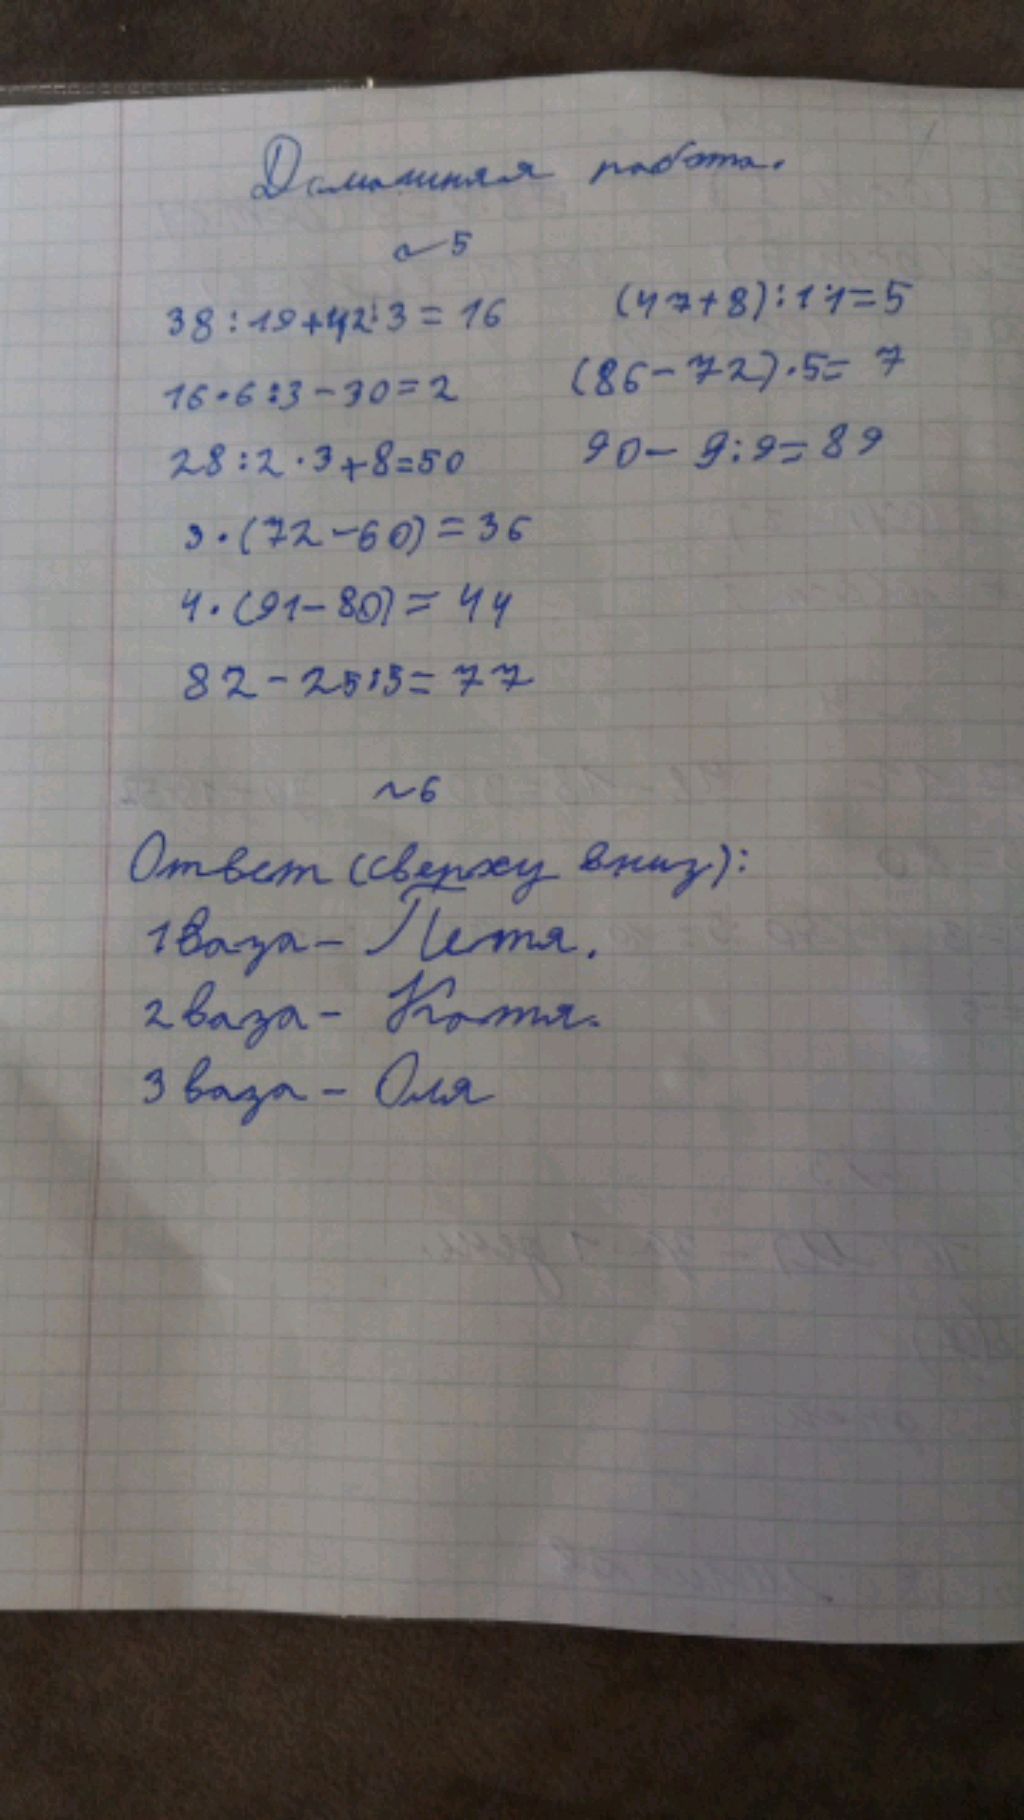 Домашняя работа.
~5
38:19+42:3=16
(47+8):11=5
16·6:3-30=2
(86-72)·5=7
28:2·3+8=50
90-9:9=89
3·(72-60)=36
4·(91-80)=44
82-25:5=77
~6
Ответ (сверху вниз):
1 ваза - Петя.
2 ваза - Катя.
3 ваза - Оля